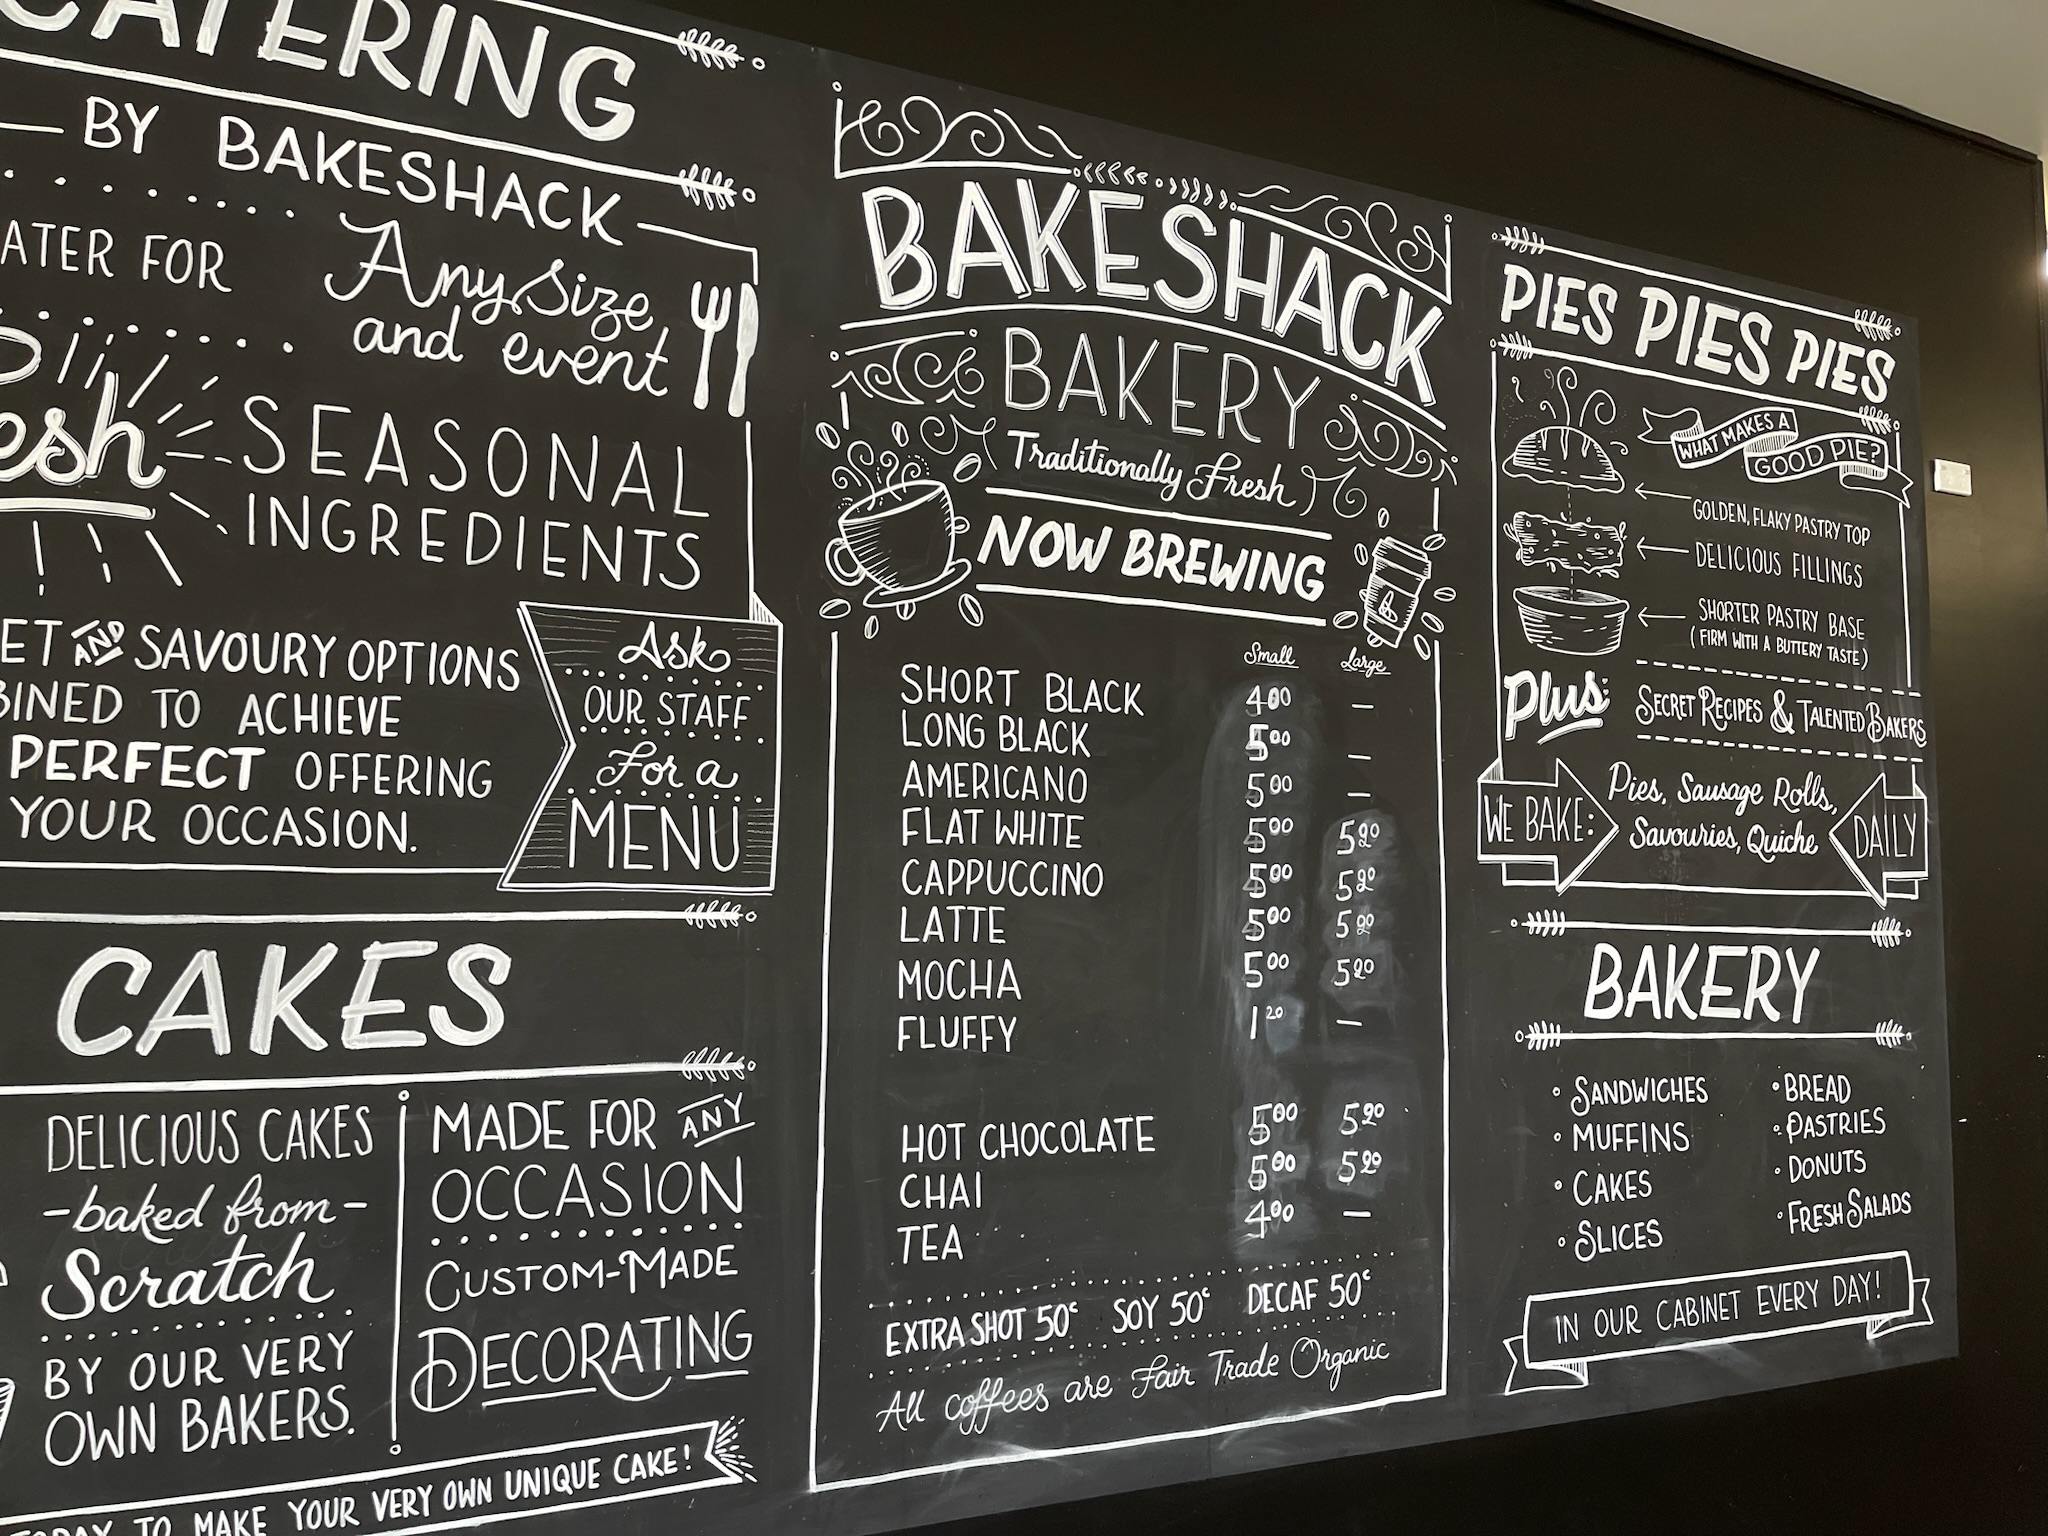 CATERING
BY BAKESHACK
ATER FOR Any Size
and event
esh SEASONAL
INGREDIENTS
ET AND SAVOURY OPTIONS
BINED TO ACHIEVE
PERFECT OFFERING
YOUR OCCASION.
Ask
OUR STAFF
For a
MENU
CAKES
DELICIOUS CAKES
-baked from-
Scratch
BY OUR VERY
OWN BAKERS.
MADE FOR ANY
OCCASION
CUSTOM-MADE
DECORATING
TODAY TO MAKE YOUR VERY OWN UNIQUE CAKE!
BAKESHACK
BAKERY
Traditionally Fresh
NOW BREWING
Small Large
SHORT BLACK 4.00 —
LONG BLACK 5.00 —
AMERICANO 5.00 —
FLAT WHITE 5.00
CAPPUCCINO 5.00
LATTE 5.00
MOCHA 5.00
FLUFFY 1.20 —
HOT CHOCOLATE 5.00
CHAI 5.00
TEA 4.00 —
EXTRA SHOT 50c SOY 50c DECAF 50c
All coffees are Fair Trade Organic
PIES PIES PIES
WHAT MAKES A
GOOD PIE?
GOLDEN, FLAKY PASTRY TOP
DELICIOUS FILLINGS
SHORTER PASTRY BASE
(FIRM WITH A BUTTERY TASTE)
Plus: SECRET RECIPES & TALENTED BAKERS
WE BAKE: Pies, Sausage Rolls,
Savouries, Quiche DAILY
BAKERY
• SANDWICHES
• MUFFINS
• CAKES
• SLICES
• BREAD
• PASTRIES
• DONUTS
• FRESH SALADS
IN OUR CABINET EVERY DAY!